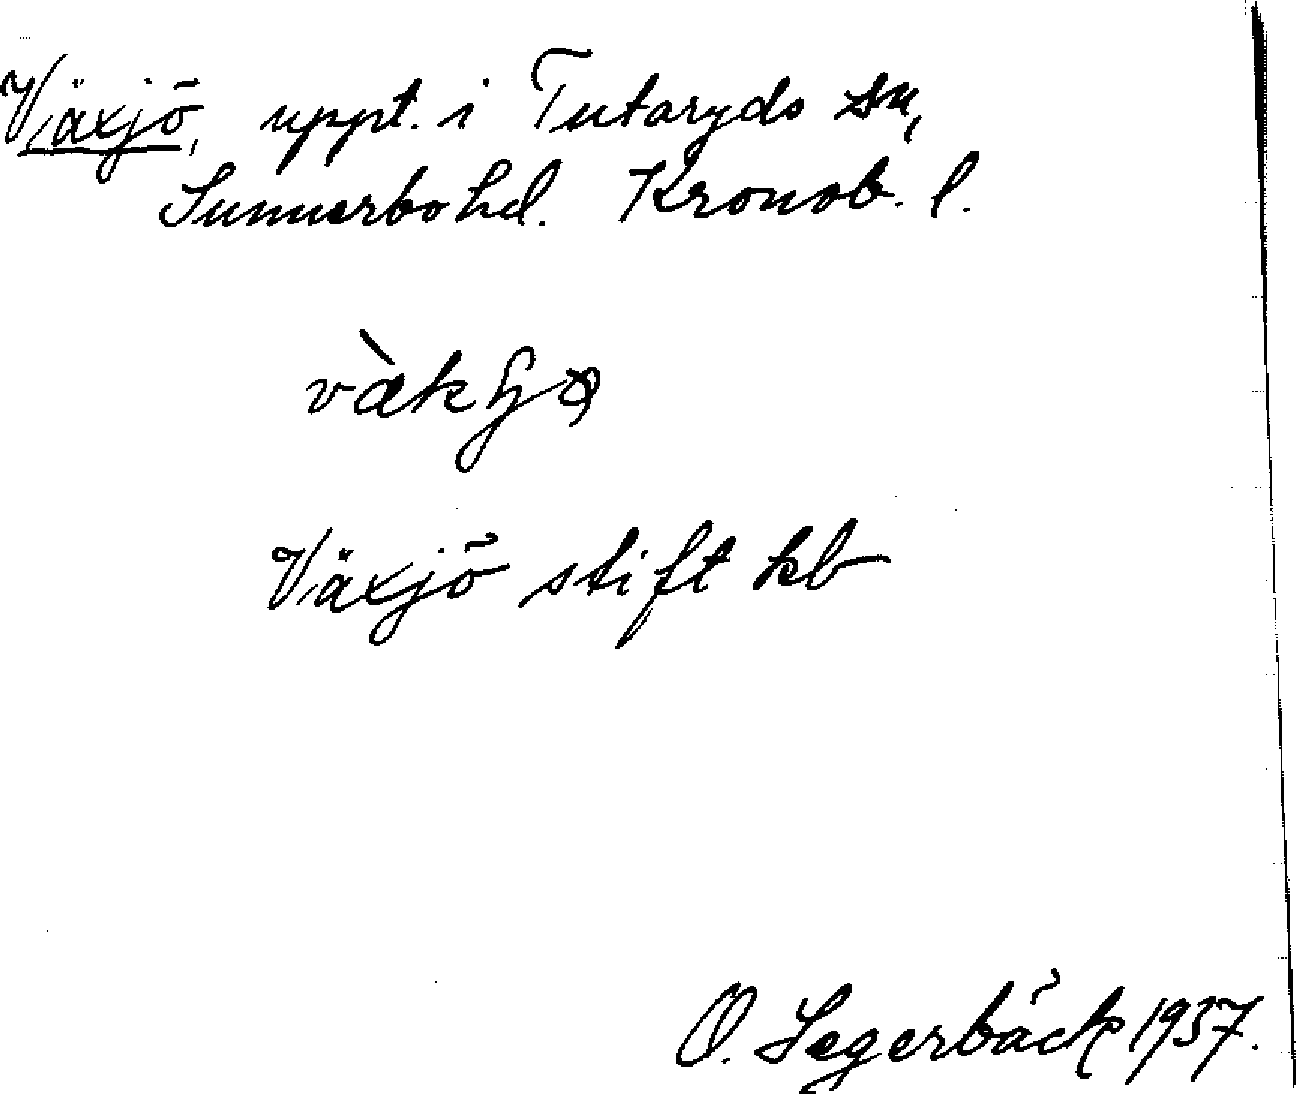 Växjö, uppt. i Tutaryds sn,
Sunnerbo hd. Kronob. l.
Växjö stift kb
O. Segerbäck 1937.